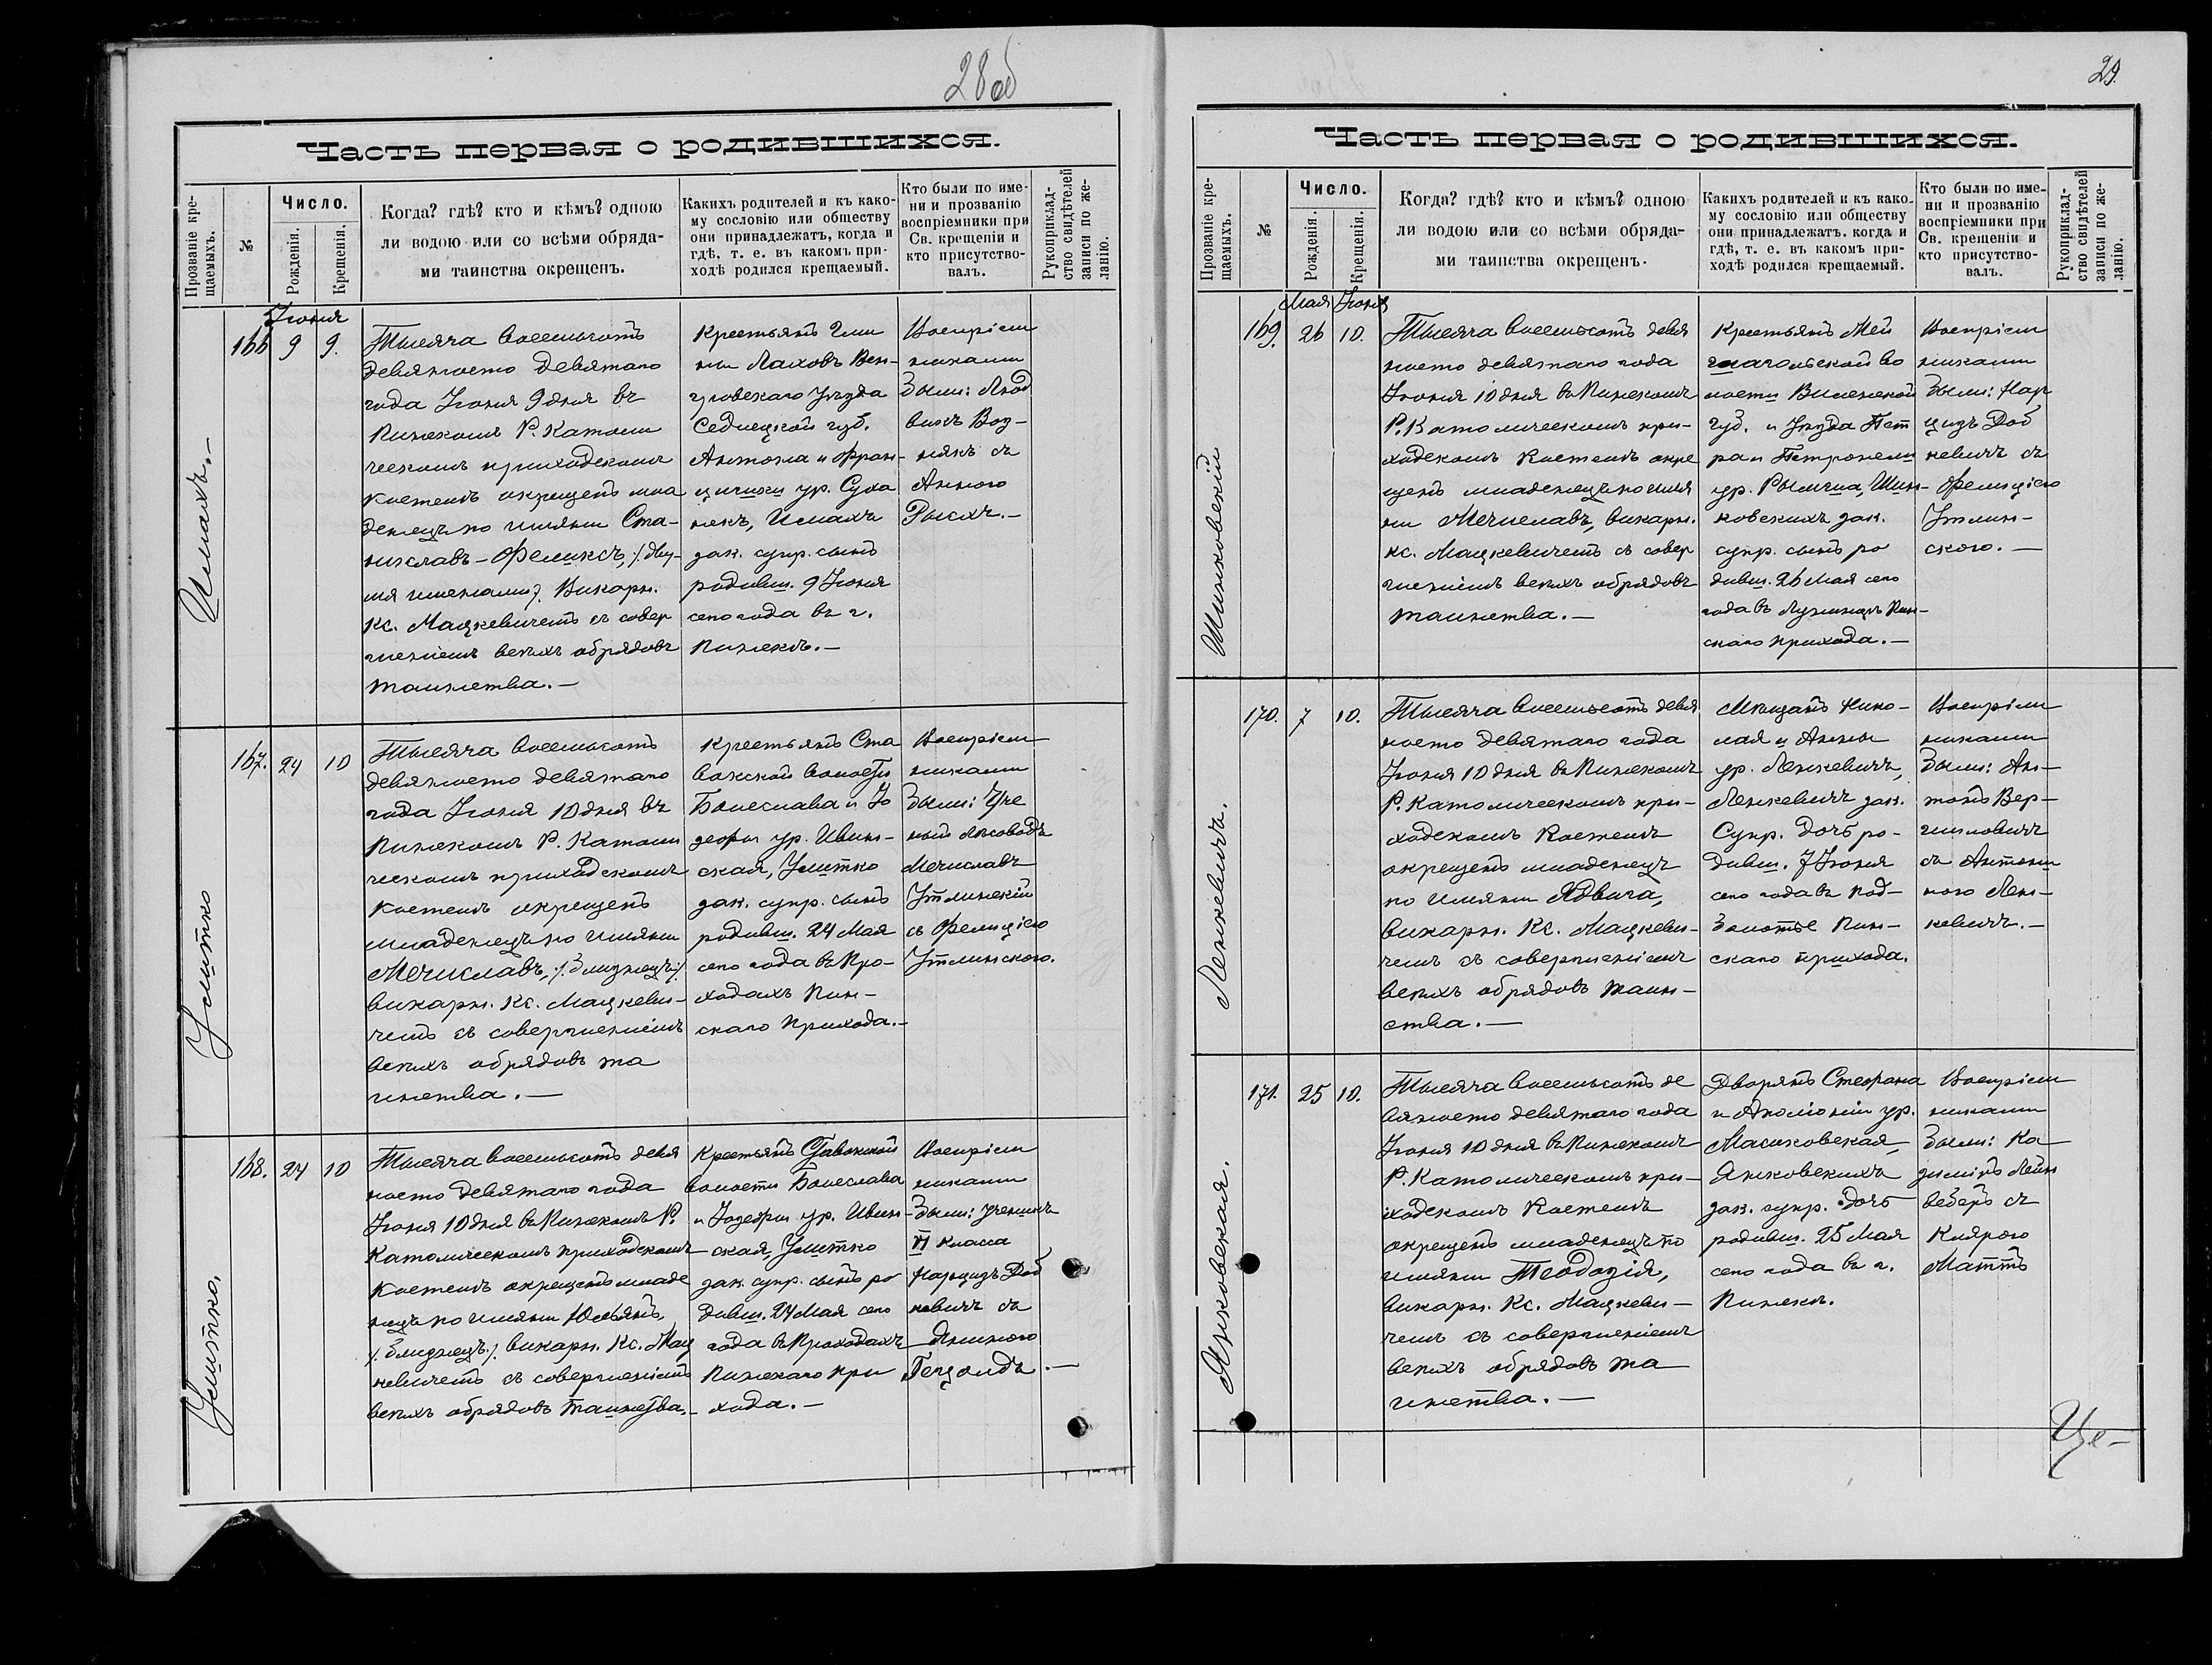 28 об
Часть первая о родившихся.
Прозваніе кре-
щаемыхъ.
№
Число.
Рожденія.
Крещенія.
Когда? гдѣ? кто и кѣмъ? одною
ли водою или со всѣми обряда-
ми таинства окрещенъ.
Какихъ родителей и къ како-
му сословію или обществу
они принадлежатъ, когда и
гдѣ, т. е. въ какомъ при-
ходѣ родился крещаемый.
Кто были по име-
ни и прозванію
воспріемники при
Св. крещеніи и
кто присутство-
валъ.
Рукоприклад-
ство свидѣтелей
записи по же-
ланію.
Іюня
166 9 9.
Тысяча восемьсотъ
девяносто девятаго
года Іюня 9 дня въ
Пинскомъ Р. Католи
ческомъ приходскомъ
костелѣ окрещенъ мла
денецъ по имяни Ста-
ниславъ-Феликсъ, /. дву-
мя именами ./ Викарн.
Кс. Мацкевичемъ съ совер
шеніемъ всѣхъ обрядовъ
таинства. —
Крестьянъ Гми
ны Ляховъ Вен-
гровскаго Уѣзда
Седлецкой губ.
Антона и Фран-
цишки ур. Суха
некъ,
зак. супр. сынъ
родивш. 9 Іюня
сего года въ г.
Пинскѣ. —
Воспріем
никами
были: Люд
викъ Воз-
някъ съ
Анною
Рысяхъ. —
167. 24 10
Тысяча восемьсотъ
девяносто девятаго
года Іюня 10 дня въ
Пинскомъ Р. Католи
ческомъ приходскомъ
костелѣ окрещенъ
младенецъ по имяни
Мечиславъ, /. близнецъ ./
викарн. Кс. Мацкеви-
чемъ съ совершеніемъ
всѣхъ обрядовъ та
инства. —
Крестьянъ Ста
вокской волости
Болеслава и Іо
зефы ур. Ивин-
ская, Улитко
зак. супр. сынъ
родивш. 24 Мая
сего года въ Про-
ходахъ Пин-
скаго прихода. —
Воспріем
никами
были: Уче
ный Лѣсоводъ
Мечиславъ
Утлинскій
съ Фелиціею
Утлинскою.
Улитко
168. 24 10
Тысяча восемьсотъ девя
носто девятаго года
Іюня 10 дня въ Пинскомъ Р.
Католическомъ приходскомъ
костелѣ окрещенъ младе
нецъ по имяни Юльянъ
/. близнецъ ./ викарн. Кс. Мац
кевичемъ съ совершеніемъ
всѣхъ обрядовъ таинства. —
Крестьянъ Ставокской
волости Болеслава
и Іозефы ур. Ивин-
ская, Улитко
зак. супр. сынъ ро
дивш. 24 Мая сего
года въ Проходахъ
Пинскаго при
хода. —
Воспріем
никами
были: ученикъ
VI класса
Нарцизъ Доб
кевичъ съ
Гецолдъ. —
Улитко.
29.
Часть первая о родившихся.
Прозваніе кре-
щаемыхъ.
№
Число.
Рожденія.
Крещенія.
Когда? гдѣ? кто и кѣмъ? одною
ли водою или со всѣми обряда-
ми таинства окрещенъ.
Какихъ родителей и къ како-
му сословію или обществу
они принадлежатъ. когда и
гдѣ, т. е. въ какомъ при-
ходѣ родился крещаемый.
Кто были по име-
ни и прозванію
воспріемники при
Св. крещеніи и
кто присутство-
валъ.
Рукоприклад-
ство свидѣтелей
записи по же-
ланію.
Мая Іюня
169. 26 10.
Тысяча восемьсотъ девя
носто девятаго года
Іюня 10 дня въ Пинскомъ
Р. Католическомъ при-
ходскомъ костелѣ окре
щенъ младенецъ по имя
ни Мечиславъ, викарн.
кс. Мацкевичемъ съ совер
шеніемъ всѣхъ обрядовъ
таинства. —
Крестьянъ Мей
шагольской во
лости Виленской
губ. и Уѣзда Пет
ра и Петронели
ур. Рымша, Шин-
ковскихъ зак.
супр. сынъ ро
дивш. 26 Мая сего
года въ Лунинцѣ Пин-
скаго прихода. —
Воспріем
никами
были: Нар
цизъ Доб
кевичъ съ
Фелиціею
Утлин-
скою. —
Шинковскій
170. 7 10.
Тысяча восемьсотъ девя
носто девятаго года
Іюня 10 дня въ Пинскомъ
Р. Католическомъ при-
ходскомъ костелѣ
окрещенъ младенецъ
по имяни Ядвига,
викарн. Кс. Мацкеви-
чемъ съ совершеніемъ
всѣхъ обрядовъ таин-
ства. —
Мѣщанъ Нико-
лая и Анны
ур. Ленкевичъ,
Ленкевичъ зак.
супр. дочь ро-
дивш. 7 Іюня
сего года въ Под-
болотье Пин-
скаго прихода.
Воспріем
никами
были: Ан-
тонъ Вер-
шиловичъ
съ Антони
ною Лен-
кевичъ. —
Ленкевичъ.
171. 25 10.
Тысяча восемьсотъ де
вяносто девятаго года
Іюня 10 дня въ Пинскомъ
Р. Католическомъ при-
ходскомъ костелѣ
окрещенъ младенецъ по
имяни Теодозія,
викарн. Кс. Мацкеви-
чемъ съ совершеніемъ
всѣхъ обрядовъ та
инства. —
Дворянъ Стефана
и Аполіоніи ур.
Масюковская,
Янковскихъ
зак. супр. дочь
родивш. 25 Мая
сего года въ г.
Пинскѣ.
Воспріем
никами
были: Ка
зиміръ Лейн
веберъ съ
Клярою
Маттъ
Янковская.